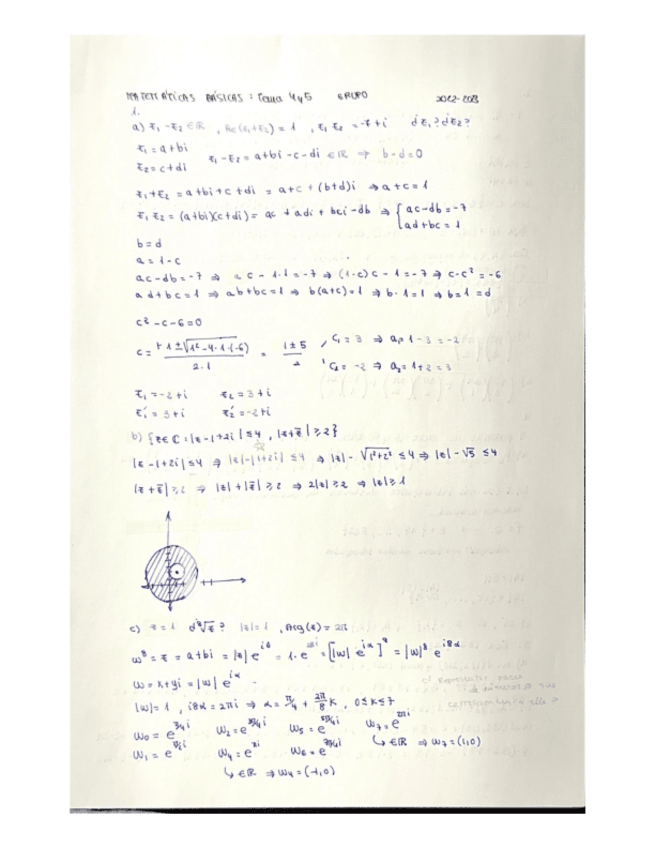 MATEMÁTICAS BÁSICAS: Tema 4 y 5 GRUPO 2022-2023
1.
a) z₁ - z₂ ∈ ℝ , Re(z₁+z₂) = 1 , z₁ z₂ = -7 + i ¿z₁? ¿z₂?
z₁ = a+bi
z₂ = c+di z₁ - z₂ = a+bi - c - di ∈ ℝ ⇒ b-d=0
z₁+z₂ = a+bi+c+di = a+c+(b+d)i ⇒ a+c=1
z₁z₂ = (a+bi)(c+di) = ac + adi + bci - db ⇒ { ac-db = -7
ad+bc = 1
b=d
a=1-c
ac-db=-7 ⇒ c - 1·1 = -7 ⇒ (1-c)c - 1 = -7 ⇒ c-c² = -6
ad+bc=1 ⇒ ab+bc=1 ⇒ b(a+c)=1 ⇒ b·1=1 ⇒ b=1=d
c²-c-6=0
c = +1±√(1²-4·1·(-6)) / 2·1 = 1±5 / 2 , c₁=3 ⇒ a₁= 1-3 = -2
c₂=-2 ⇒ a₂=1+2=3
z₁=-2+i z₂=3+i
z₁'=3+i z₂'=-2+i
b) {z∈ℂ : |z-1+2i| ≤ 4 , |z+z̄| ≥ 2}
|z-1+2i| ≤ 4 ⇒ |z|-|-1+2i| ≤ 4 ⇒ |z| - √(1²+2²) ≤ 4 ⇒ |z| - √5 ≤ 4
|z+z̄| ≥ 2 ⇒ |z|+|z̄| ≥ 2 ⇒ 2|z| ≥ 2 ⇒ |z| ≥ 1
c) z=1 ¿⁸√z? |z|=1 , Arg(z) = 2π
w⁸ = z = a+bi = |z| e^{iθ} = 1·e^{2πi} = [|w| e^{iα}]⁸ = |w|⁸ e^{i8α}
w = x+yi = |w| e^{iα}
|w|=1 , i8α = 2πi ⇒ α = π/4 + 2π/8 k , 0≤k≤7
w₀ = e w₂ = e w₅ = e w₇ = e^{2πi}
w₁ = e w₄ = e^{πi} w₆ = e ↳ ∈ℝ ⇒ w₇ = (1,0)
↳ ∈ℝ ⇒ w₄ = (-1,0)